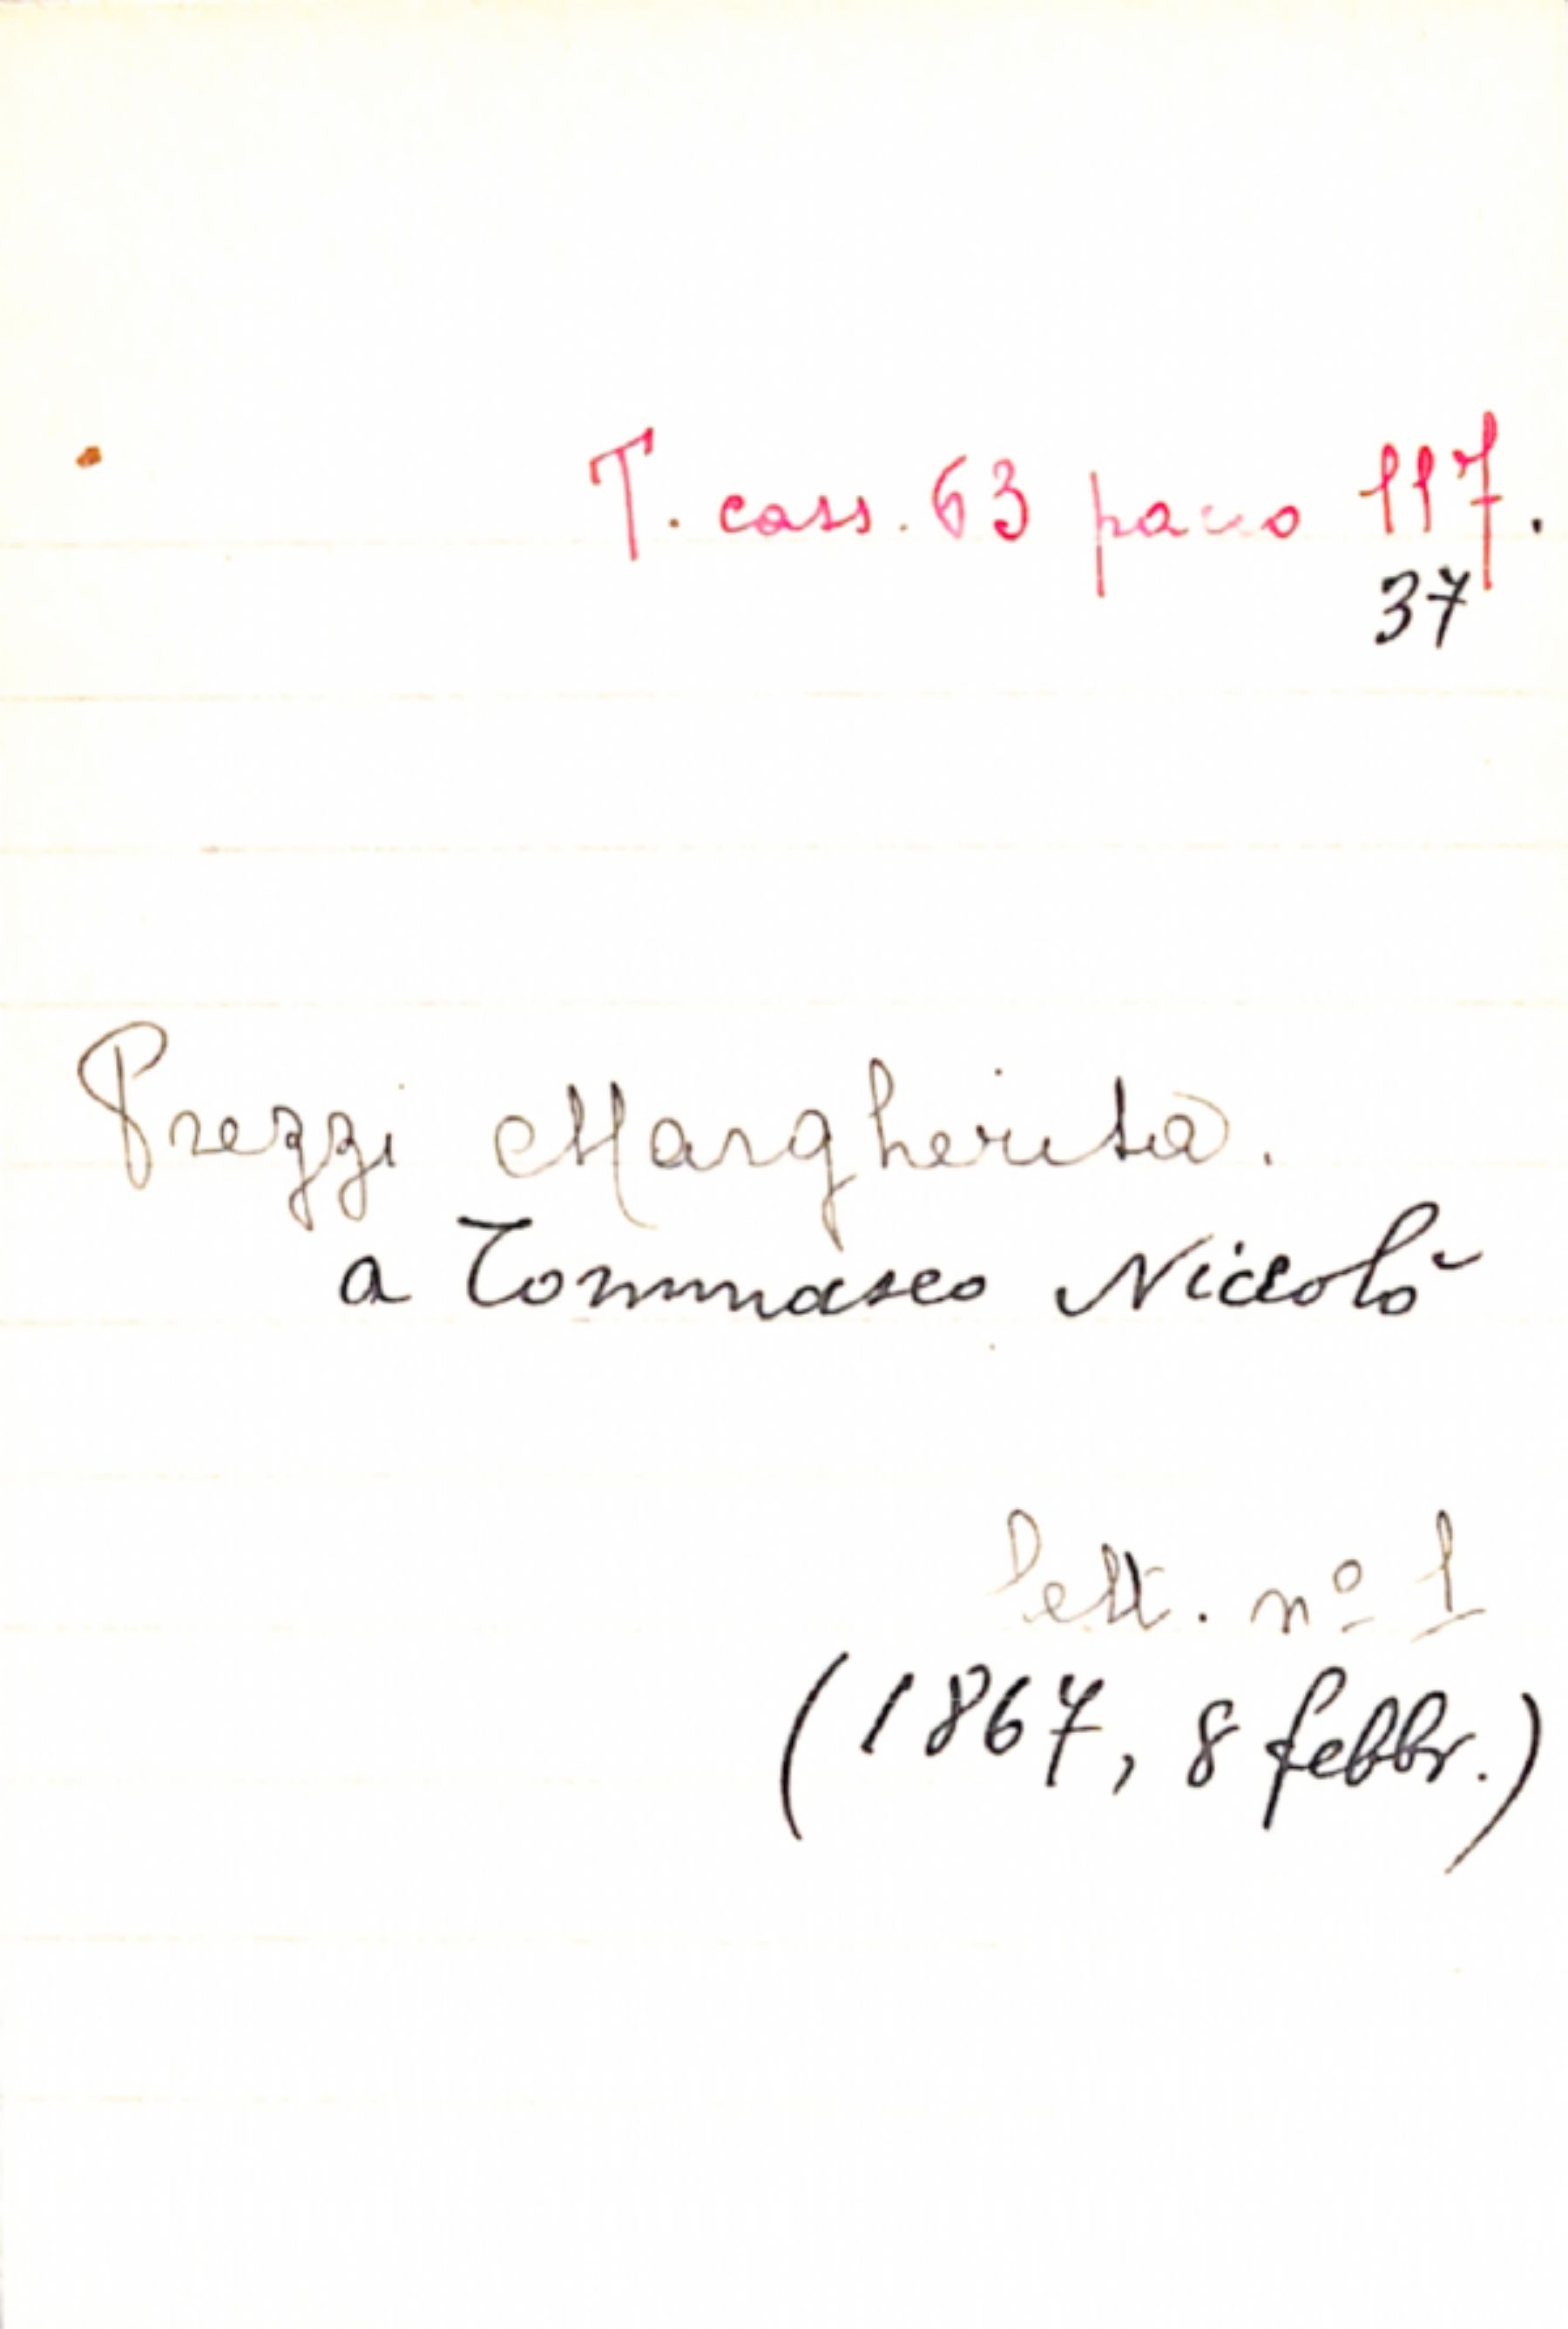 T. cass. 63 pacco 117.
37
Prezzi Margherita.
a Tommaseo Niccolò
Lett. nº 1
(1867, 8 febbr.)